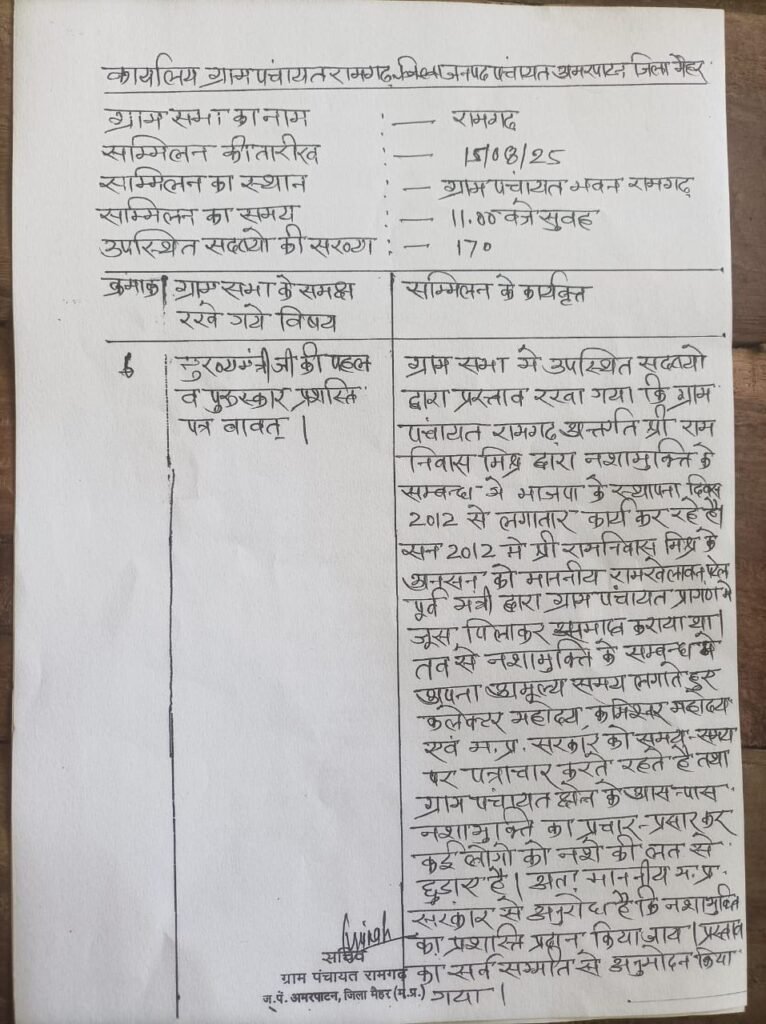 कार्यालय ग्राम पंचायत रामगढ़ जनपद पंचायत अमरपाटन जिला मैहर
ग्राम सभा का नाम : — रामगढ़
सम्मिलन की तारीख : — 15/08/25
सम्मिलन का स्थान : — ग्राम पंचायत भवन रामगढ़
सम्मिलन का समय : — 11.00 बजे सुबह
उपस्थित सदस्यो की संख्या : — 170
क्रमांक ग्राम सभा के समक्ष रखे गये विषय
सम्मिलन के कार्यवृत्त
6 मुख्यमंत्री जी की पहल
व पुरुस्कार प्रशस्ति
पत्र बावत् |
ग्राम सभा मे उपस्थित सदस्यो
द्वारा प्रस्ताव रखा गया कि ग्राम
पंचायत रामगढ़ अन्तर्गत श्री राम
निवास मिश्र द्वारा नशामुक्ति के
सम्बन्ध मे भाजपा के स्थापना दिवस
2012 से लगातार कार्य कर रहे है।
सन 2012 मे श्री रामनिवास मिश्र के
अनसन को माननीय रामखेलावन पटेल
पूर्व मंत्री द्वारा ग्राम पंचायत प्रागण मे
जूस पिलाकर समाप्त कराया था।
तव से नशामुक्ति के सम्बन्ध मे
अपना अमूल्य समय लगाते हुए
कलेक्टर महोदय, कमिश्नर महोदय
एवं म.प्र. सरकार को समय-समय
पर पत्राचार करते रहते है तथा
ग्राम पंचायत क्षेत्र के आस-पास
नशामुक्ति का प्रचार-प्रसार कर
कई लोगो को नशे की लत से
छुड़ाए है। अतः माननीय म.प्र.
सरकार से अनुरोध है कि नशामुक्ति
का प्रशस्ति प्रदान किया जाय। प्रस्ताव
का सर्व सम्मति से अनुमोदन किया
गया।
सचिव
ग्राम पंचायत रामगढ़
ज.पं. अमरपाटन, जिला मैहर (म.प्र.)